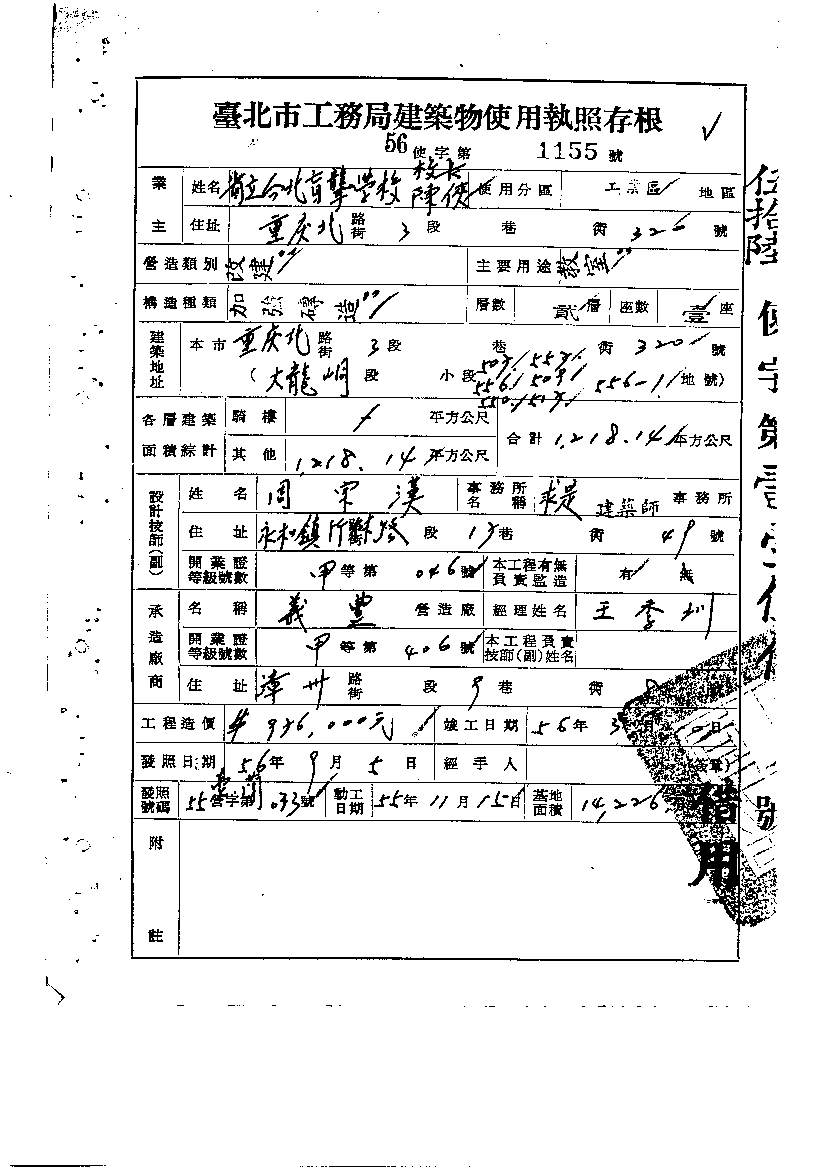 臺北市工務局建築物使用執照存根
56 使字第 1155 號
業主 姓名 省立台北盲聾學校 校長 陳 使用分區 工業區 地區
住址 重庆北 路街 3 段 巷 街 326 號
營造類別 改建 主要用途 教室
構造種類 加強磚造 層數 貳層 座數 壹座
建築地址 本市 重庆北 路街 3 段 巷 街 320 號
(大龍峒 段 小段 556-1 地號)
各層建築面積綜計 騎樓 平方公尺 合計 1,218.14 平方公尺
其他 1,218.14 平方公尺
設計技師(副) 姓名 周宗漢 事務所名稱 求是 建築師 事務所
住址 永和鎮竹林路 段 17 巷 街 49 號
開業證等級號數 甲等第 046 號 本工程有無負責監造 有 無
承造廠商 名稱 義豐 營造廠 經理姓名 王季圳
開業證等級號數 甲等第 406 號 本工程負責技師(副)姓名
住址 漳州 路街 段 9 巷 街 號
工程造價 936,000元 竣工日期 56年 3 月 日
發照日期 56年 9月 5日 經手人 (簽章)
發照號碼 55營字第 033號 動工日期 55年 11月 15日 基地面積 14,226
附註
借用
伍拾陸 使字第壹 號